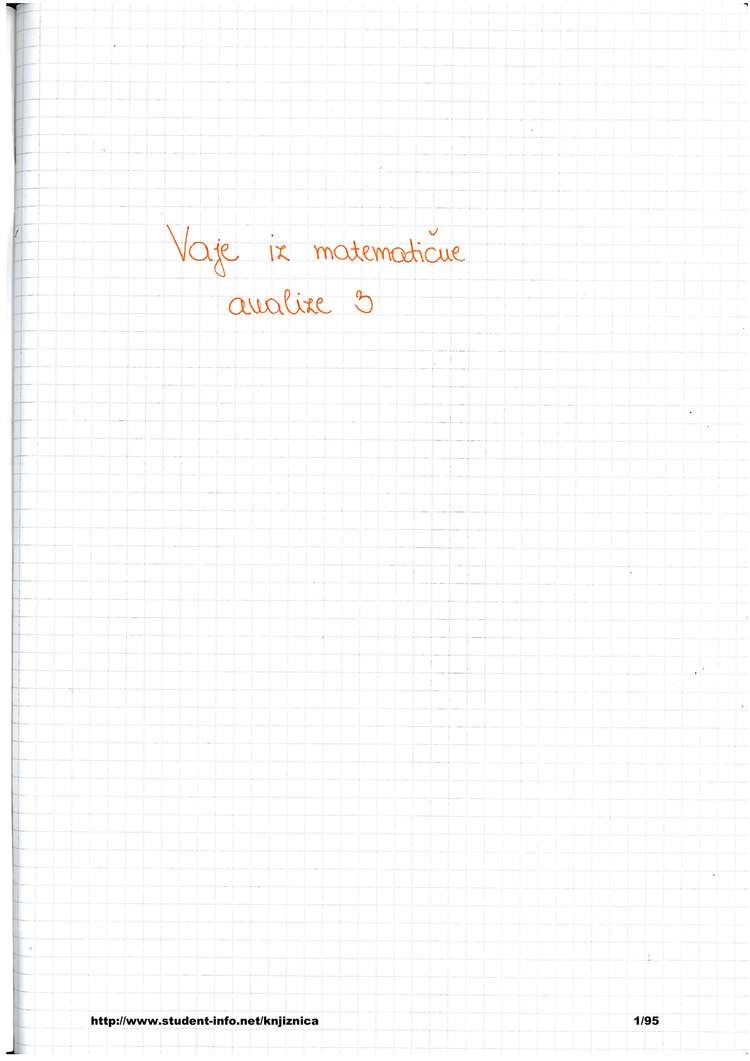 Vaje iz matematične
analize 3
http://www.student-info.net/knjiznica 1/95